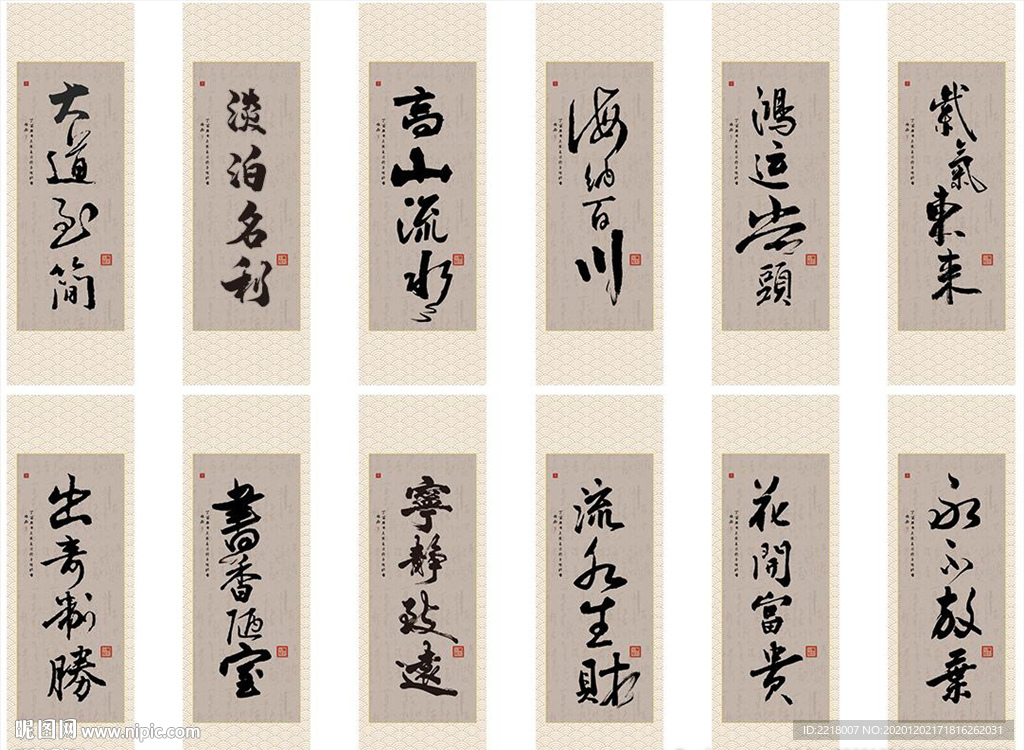 大道至简
淡泊名利
高山流水
海纳百川
鸿运当头
紫氣東来
出奇制勝
書香陋室
寧静致遠
流水生财
花開富貴
永不放棄
昵图网 www.nipic.com
ID:2218007 NO:20201202171816262031